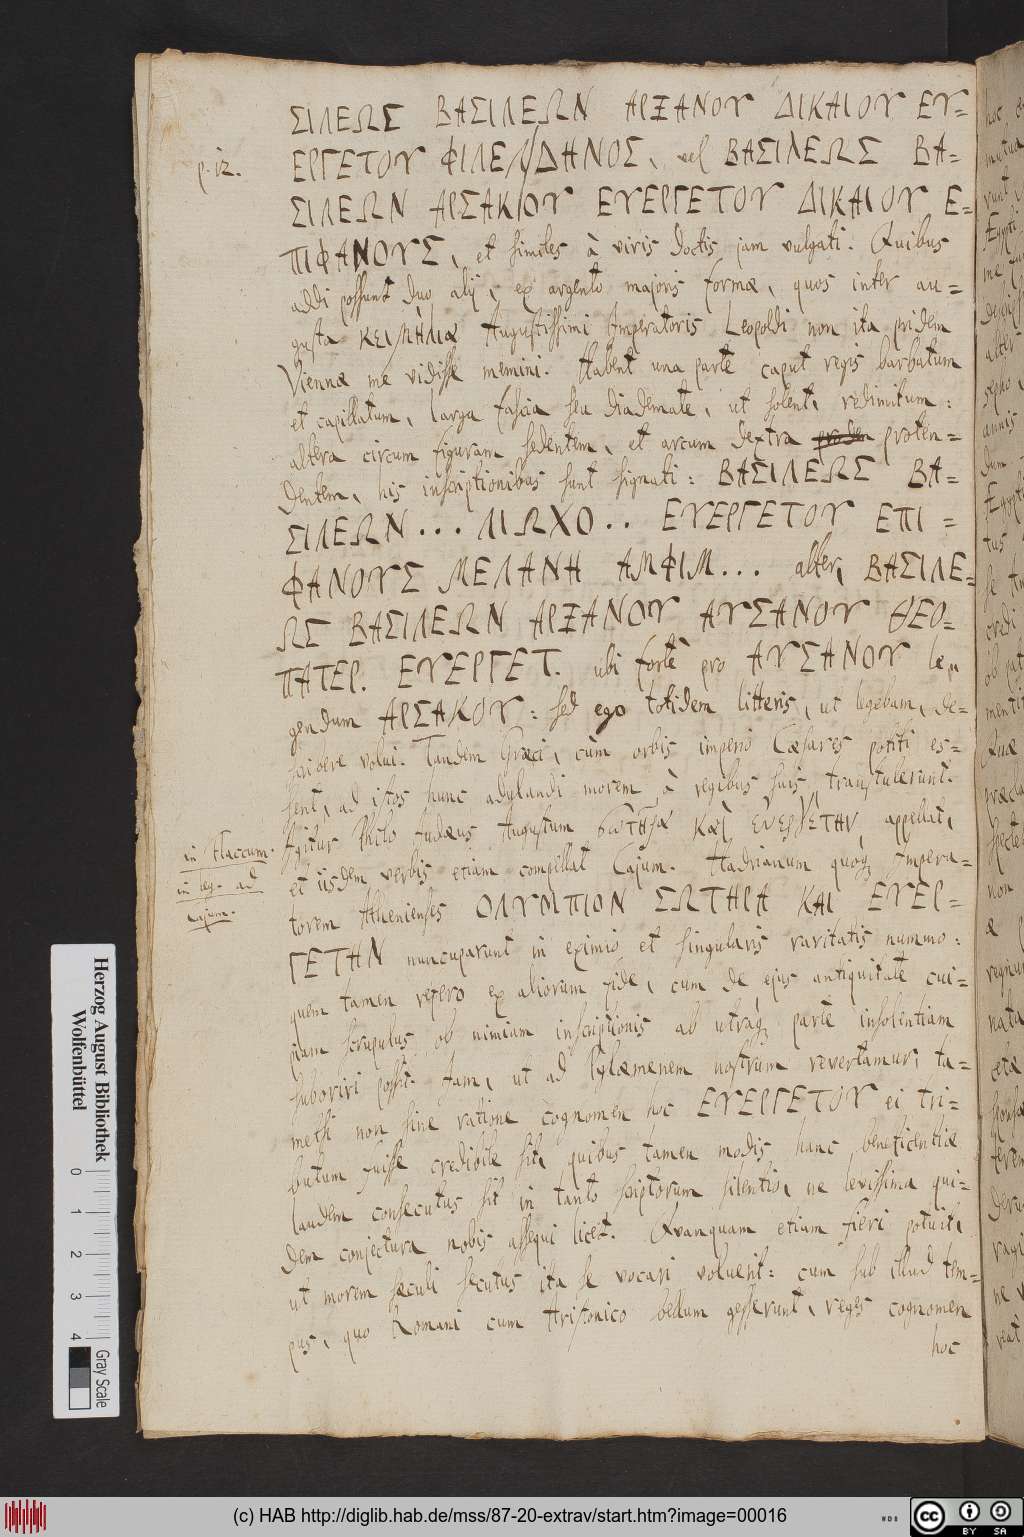 ΣΙΛΕΩΣ ΒΑΣΙΛΕΩΝ ΑΡΞΑΝΟΥ ΔΙΚΑΙΟΥ ΕΥ=
p. 12.
ΕΡΓΕΤΟΥ ΦΙΛΕΛΛΔΗΝΟΣ, vel ΒΑΣΙΛΕΩΣ ΒΑ=
ΣΙΛΕΩΝ ΑΡΣΑΚΙΟΥ ΕΥΕΡΓΕΤΟΥ ΔΙΚΑΙΟΥ Ε=
ΠΙΦΑΝΟΥΣ, et similes à viris doctis jam vulgati. Quibus
addi possunt duo alij, ex argento majoris formæ, quos inter au=
gusta κειμήλια Augustissimi Imperatoris Leopoldi non ita pridem
Viennæ me vidisse memini. Habent una parte caput regis barbatum
et capillatum, larga fascia seu diademate, ut solent, redimitum:
altera circum figuram sedentem, et arcum dextra proten=
dentem, his inscriptionibus sunt signati: ΒΑΣΙΛΕΩΣ ΒΑ=
ΣΙΛΕΩΝ ... ΛΙΩΧΟ .. ΕΥΕΡΓΕΤΟΥ ΕΠΙ=
ΦΑΝΟΥΣ ΜΕΛΑΝΗ ΑΜΦΙΜ... alter, ΒΑΣΙΛΕ=
ΩΣ ΒΑΣΙΛΕΩΝ ΑΡΞΑΝΟΥ ΑΥΣΑΝΟΥ ΘΕΟ=
ΠΑΤΕΡ. ΕΥΕΡΓΕΤ. ubi fortè pro ΑΥΣΑΝΟΥ le=
gendum ΑΡΣΑΚΟΥ: sed ego totidem litteris, ut legebam, de=
scribere volui. Tandem Græci, cùm orbis imperio Cæsares potiti es=
sent, ad istos hunc adulandi morem à regibus suis transtulerunt.
in Flaccum.
Igitur Philo Judæus Augustum σωτῆρα καὶ εὐεργέτην appellat,
in leg. ad
Cajum.
et iisdem verbis etiam compellat Cajum. Hadrianum quoq; Impera=
torem Athenienses ΟΛΥΜΠΙΟΝ ΣΩΤΗΡΑ ΚΑΙ ΕΥΕΡ=
ΓΕΤΗΝ nuncuparunt in eximio et singularis raritatis nummo:
quem tamen refero ex aliorum fide, cum de ejus antiquitate cui=
piam scrupulus ob nimiam inscriptionis ab utraq; parte insolentiam
suboriri possit. Jam, ut ad Pylæmenem nostrum revertamur, ta=
metsi non sine ratione cognomen hoc ΕΥΕΡΓΕΤΟΥ ei tri=
butum fuisse credibile sit, quibus tamen modis hanc beneficentiæ
laudem consecutus sit in tanto scriptorum silentio, ne levissima qui=
dem conjectura nobis assequi licet. Quanquam etiam fieri potuit,
ut morem sæculi secutus ita se vocari voluerit: cum sub illud tem=
pus, quo Romani cum Aristonico bellum gesserunt, reges cognomen
hoc
Herzog August Bibliothek
Wolfenbüttel
0 1 2 3 4
Gray Scale
(c) HAB http://diglib.hab.de/mss/87-20-extrav/start.htm?image=00016
cc BY SA